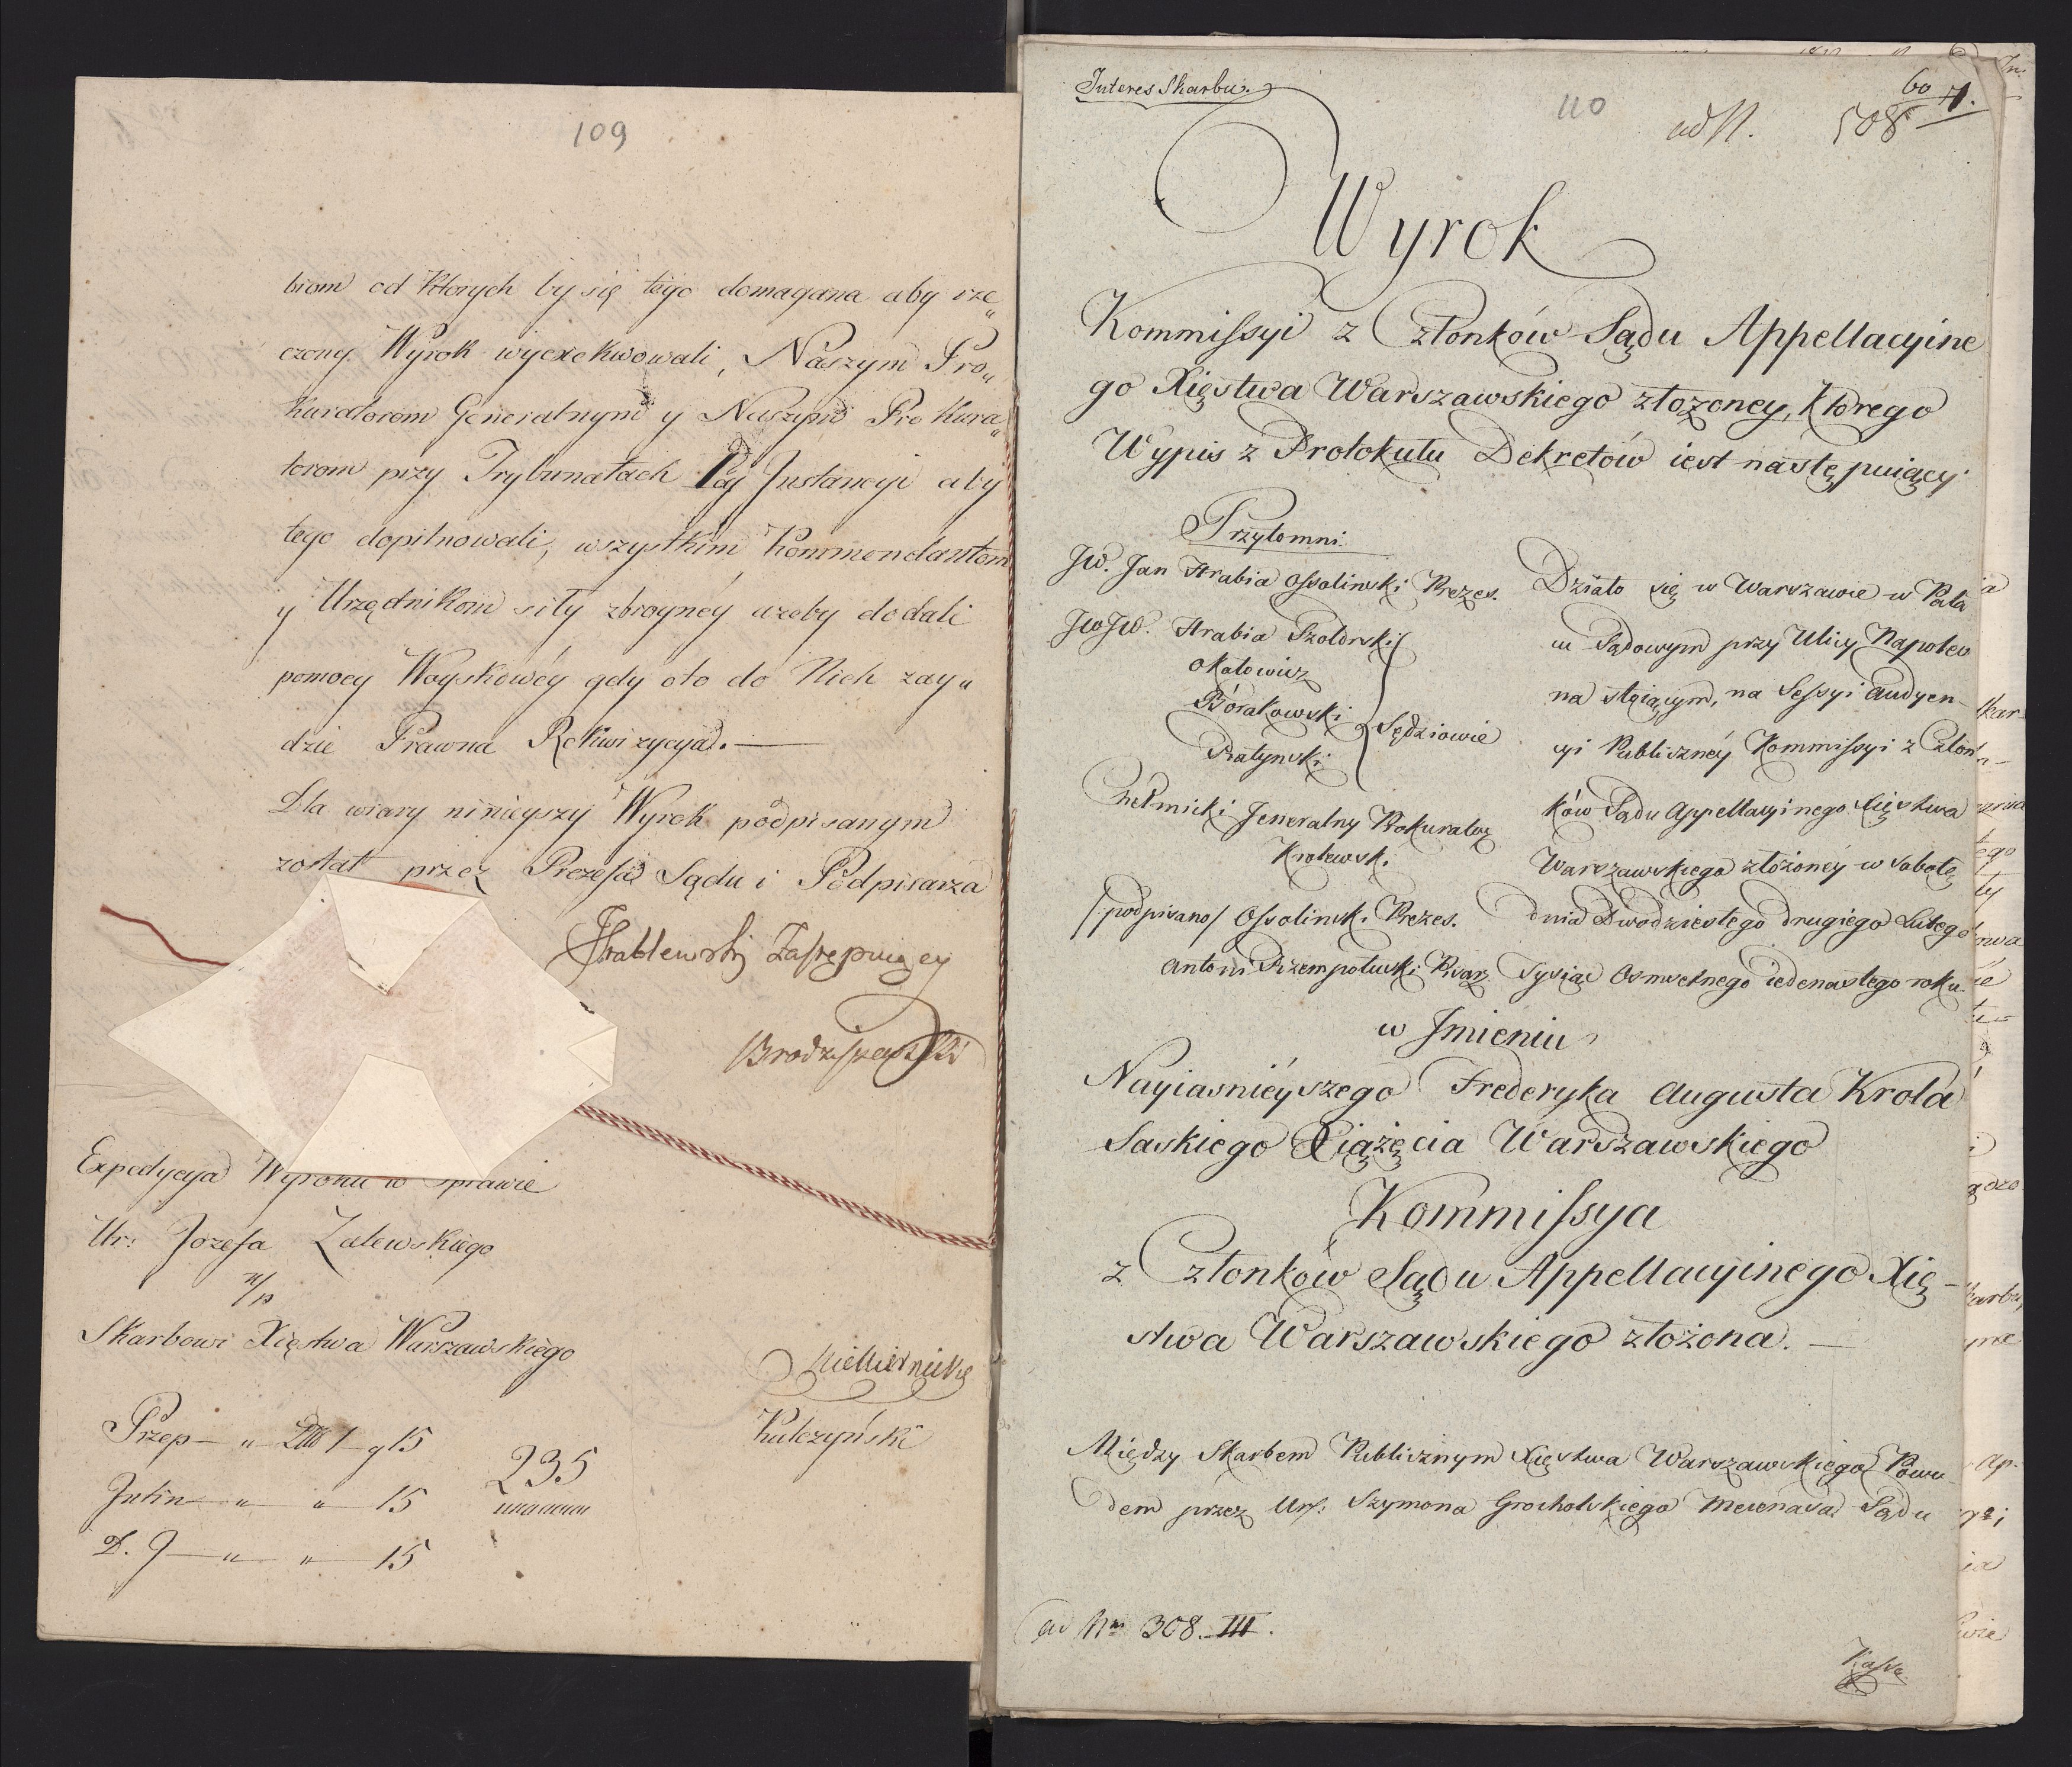 109
biom od których by się tego domagana aby rze„
czony Wyrok wyexekwowali, Naszym Pro„
kuratorom Generalnym y Naszym Prokura„
torom przy Trybunałach Iey Instancyi aby
tego dopilnowali, wszystkim Kommendantom
y Urzędnikom siły zbroyney azeby dodali
pomocy Woyskowéy gdy oto do Nich zay„
dzie Prawna Rekwizycya.—
Dla wiary ninieyszy Wyrok podpisanym
został przez Prezesa Sądu i Podpisarza
Zastępuiący
Expedycya Wyroku w Sprawie
Ur: Jozefa Zalewskiego
Skarbowi Xięstwa Warszawskiego
Kulczyński
Przep— „ — 1 — g 15
235
„ „ 15
„ „ 15
Interes Skarbu.
110
ad N. 508
60
Wyrok
Kommissyi z Członków Sądu Appellacyine
go Xięstwa Warszawskiego złożoney, którego
Wypis z Protokułu Dekretów iest następuiący
Przytomni
JW. Jan Hrabia Ossolinski Prezes.
JWJW. Hrabia Szoldrski
Okołowicz
Bórakowski
Ratynski
Sędziowie
Chełmicki Jeneralny Prokurator
Krolewski
/podpisano/ Ossolinski Prezes.
Antoni Przempołuski Pisarz
Działo się w Warszawie w Pała
cu Sądowym przy Ulicy Napoleo
na stoiącym, na Sessyi Audyen-
cyi Publicznéy Kommissyi z Człon
ków Sądu Appellacyinego Xięstwa
Warszawskiego złożonéy w Sobotę
dnia Dwódziestego drugiego Lutego
Tysiąc Osmsetnego iedenastego roku.
w Jmieniu
Nayiasniéyszego Fréderyka Augusta Króla
Saskiego Xiążęcia Warszawskiego
Kommissya
z Członków Sądu Appellacyinego Xię-
stwa Warszawskiego złożona.—
Między Skarbem Publicznym Xięstwa Warszawskiego Powo
dem przez Ur: Szymona Grocholskiego Mecenasa Sądu
ad Nrm 308. III.